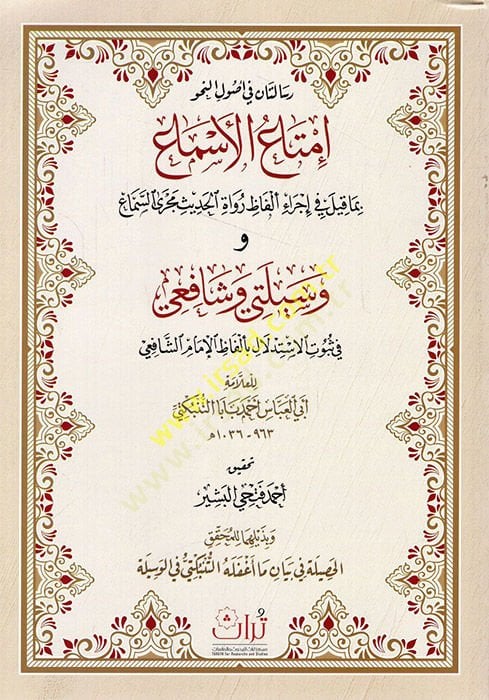 رسالتان في أصول النحو
إمتاع الأسماع
بما قيل في إجراء ألفاظ رواة الحديث مجرى السماع
و
وسيلتي وشافعي
في ثبوت الاستدلال بألفاظ الإمام الشافعي
للعلامة
أبي العباس أحمد بابا التنبكتي
٩٦٣ - ١٠٣٦ هـ
تحقيق
أحمد فتحي البشير
وبذيلها للمحقق
الحصيلة في بيان ما أغفله التنبكتي في الوسيلة
تراث
TURATH for Researche and Studies
www.irsad.com.tr